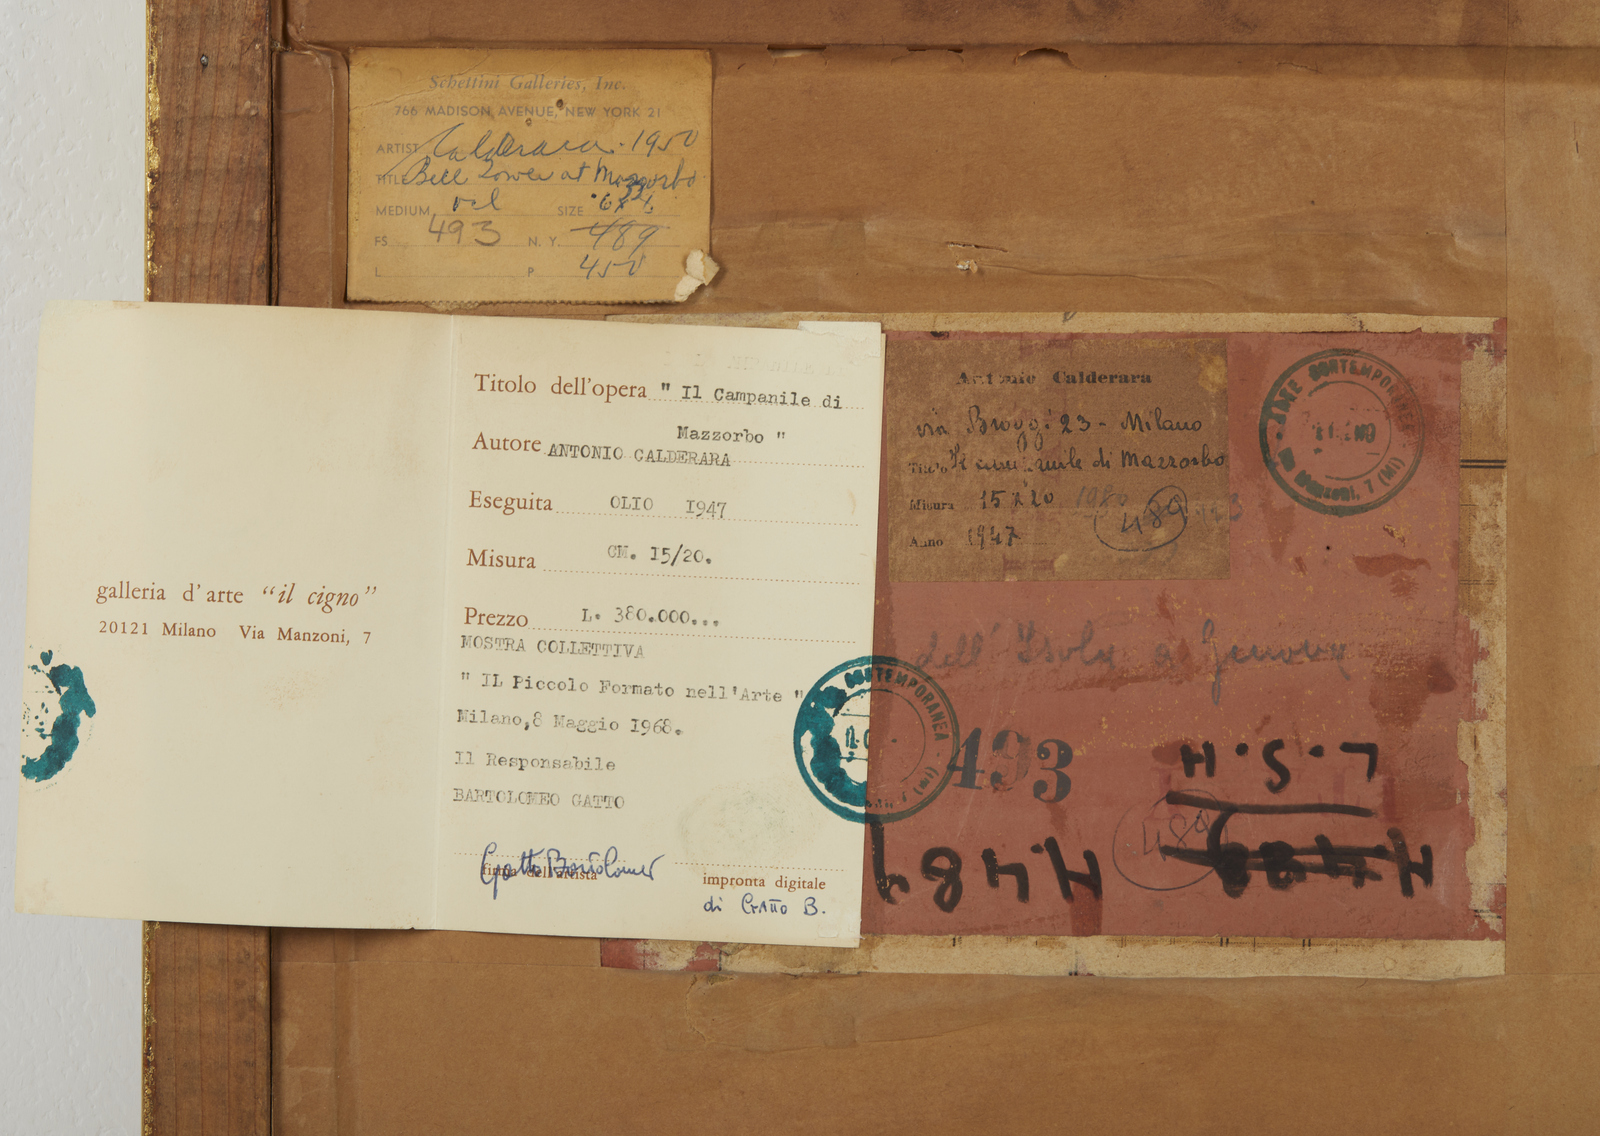 Schettini Galleries, Inc.
766 MADISON AVENUE, NEW YORK 21
ARTIST Calderara. 1950
TITLE Bell Tower at Mazzorbo
MEDIUM oil SIZE
FS 493 N. Y. 489
L P 450
galleria d'arte "il cigno"
20121 Milano Via Manzoni, 7
Titolo dell'opera " Il Campanile di
Mazzorbo "
Autore ANTONIO CALDERARA
Eseguita OLIO 1947
Misura CM. 15/20.
Prezzo L. 380.000...
MOSTRA COLLETTIVA
" IL Piccolo Formato nell'Arte "
Milano,8 Maggio 1968.
Il Responsabile
BARTOLOMEO GATTO
Gatto Bartolomeo
firma dell'artista
impronta digitale
di Gatto B.
Antonio Calderara
via Broggi 23 - Milano
Titolo Il campanile di Mazzorbo
Misura 15 x 20
489
Anno 1947
ARTE CONTEMPORANEA
Via Manzoni, 7 (MI)
dell' Isola a Genova
CONTEMPORANEA
493
L.S.H
489
H.489